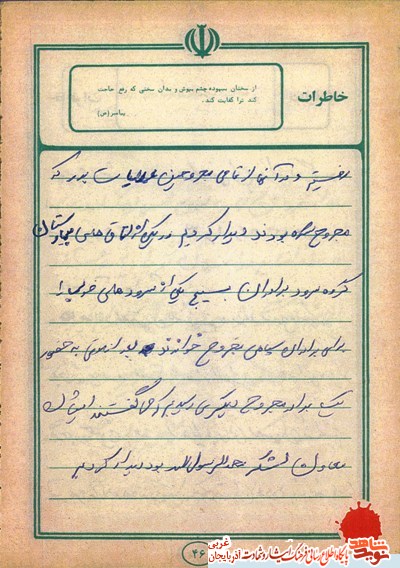 خاطرات
از سخنان بیهوده چشم بپوش و بدان سخنی که رفع حاجت
کند ترا کفایت کند.
پیامبر (ص)
رفتیم و در آنجا از تمامی مجروحین عملیات بدر که
مجروح شده بودند دیدار کردیم در یکی از اتاق های بیمارستان
گروه سرود برادران بسیج یکی از سرودهای خود را
برای برادران سپاهی مجروح خواندند بعد از مدتی به حضور
یک برادر مجروح دیگری رسیدیم که می گفتند ایشان
معاون لشگر محمد رسول الله بود دیدار کردیم
۴۶
نوید شاهد
پایگاه اطلاع رسانی فرهنگ ایثار و شهادت آذربایجان غربی